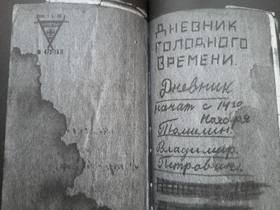 ДНЕВНИК
ГОЛОДНОГО
ВРЕМЕНИ.
Дневник
начат с 14го
Ноября
Томилин
Владимир
Петрович.